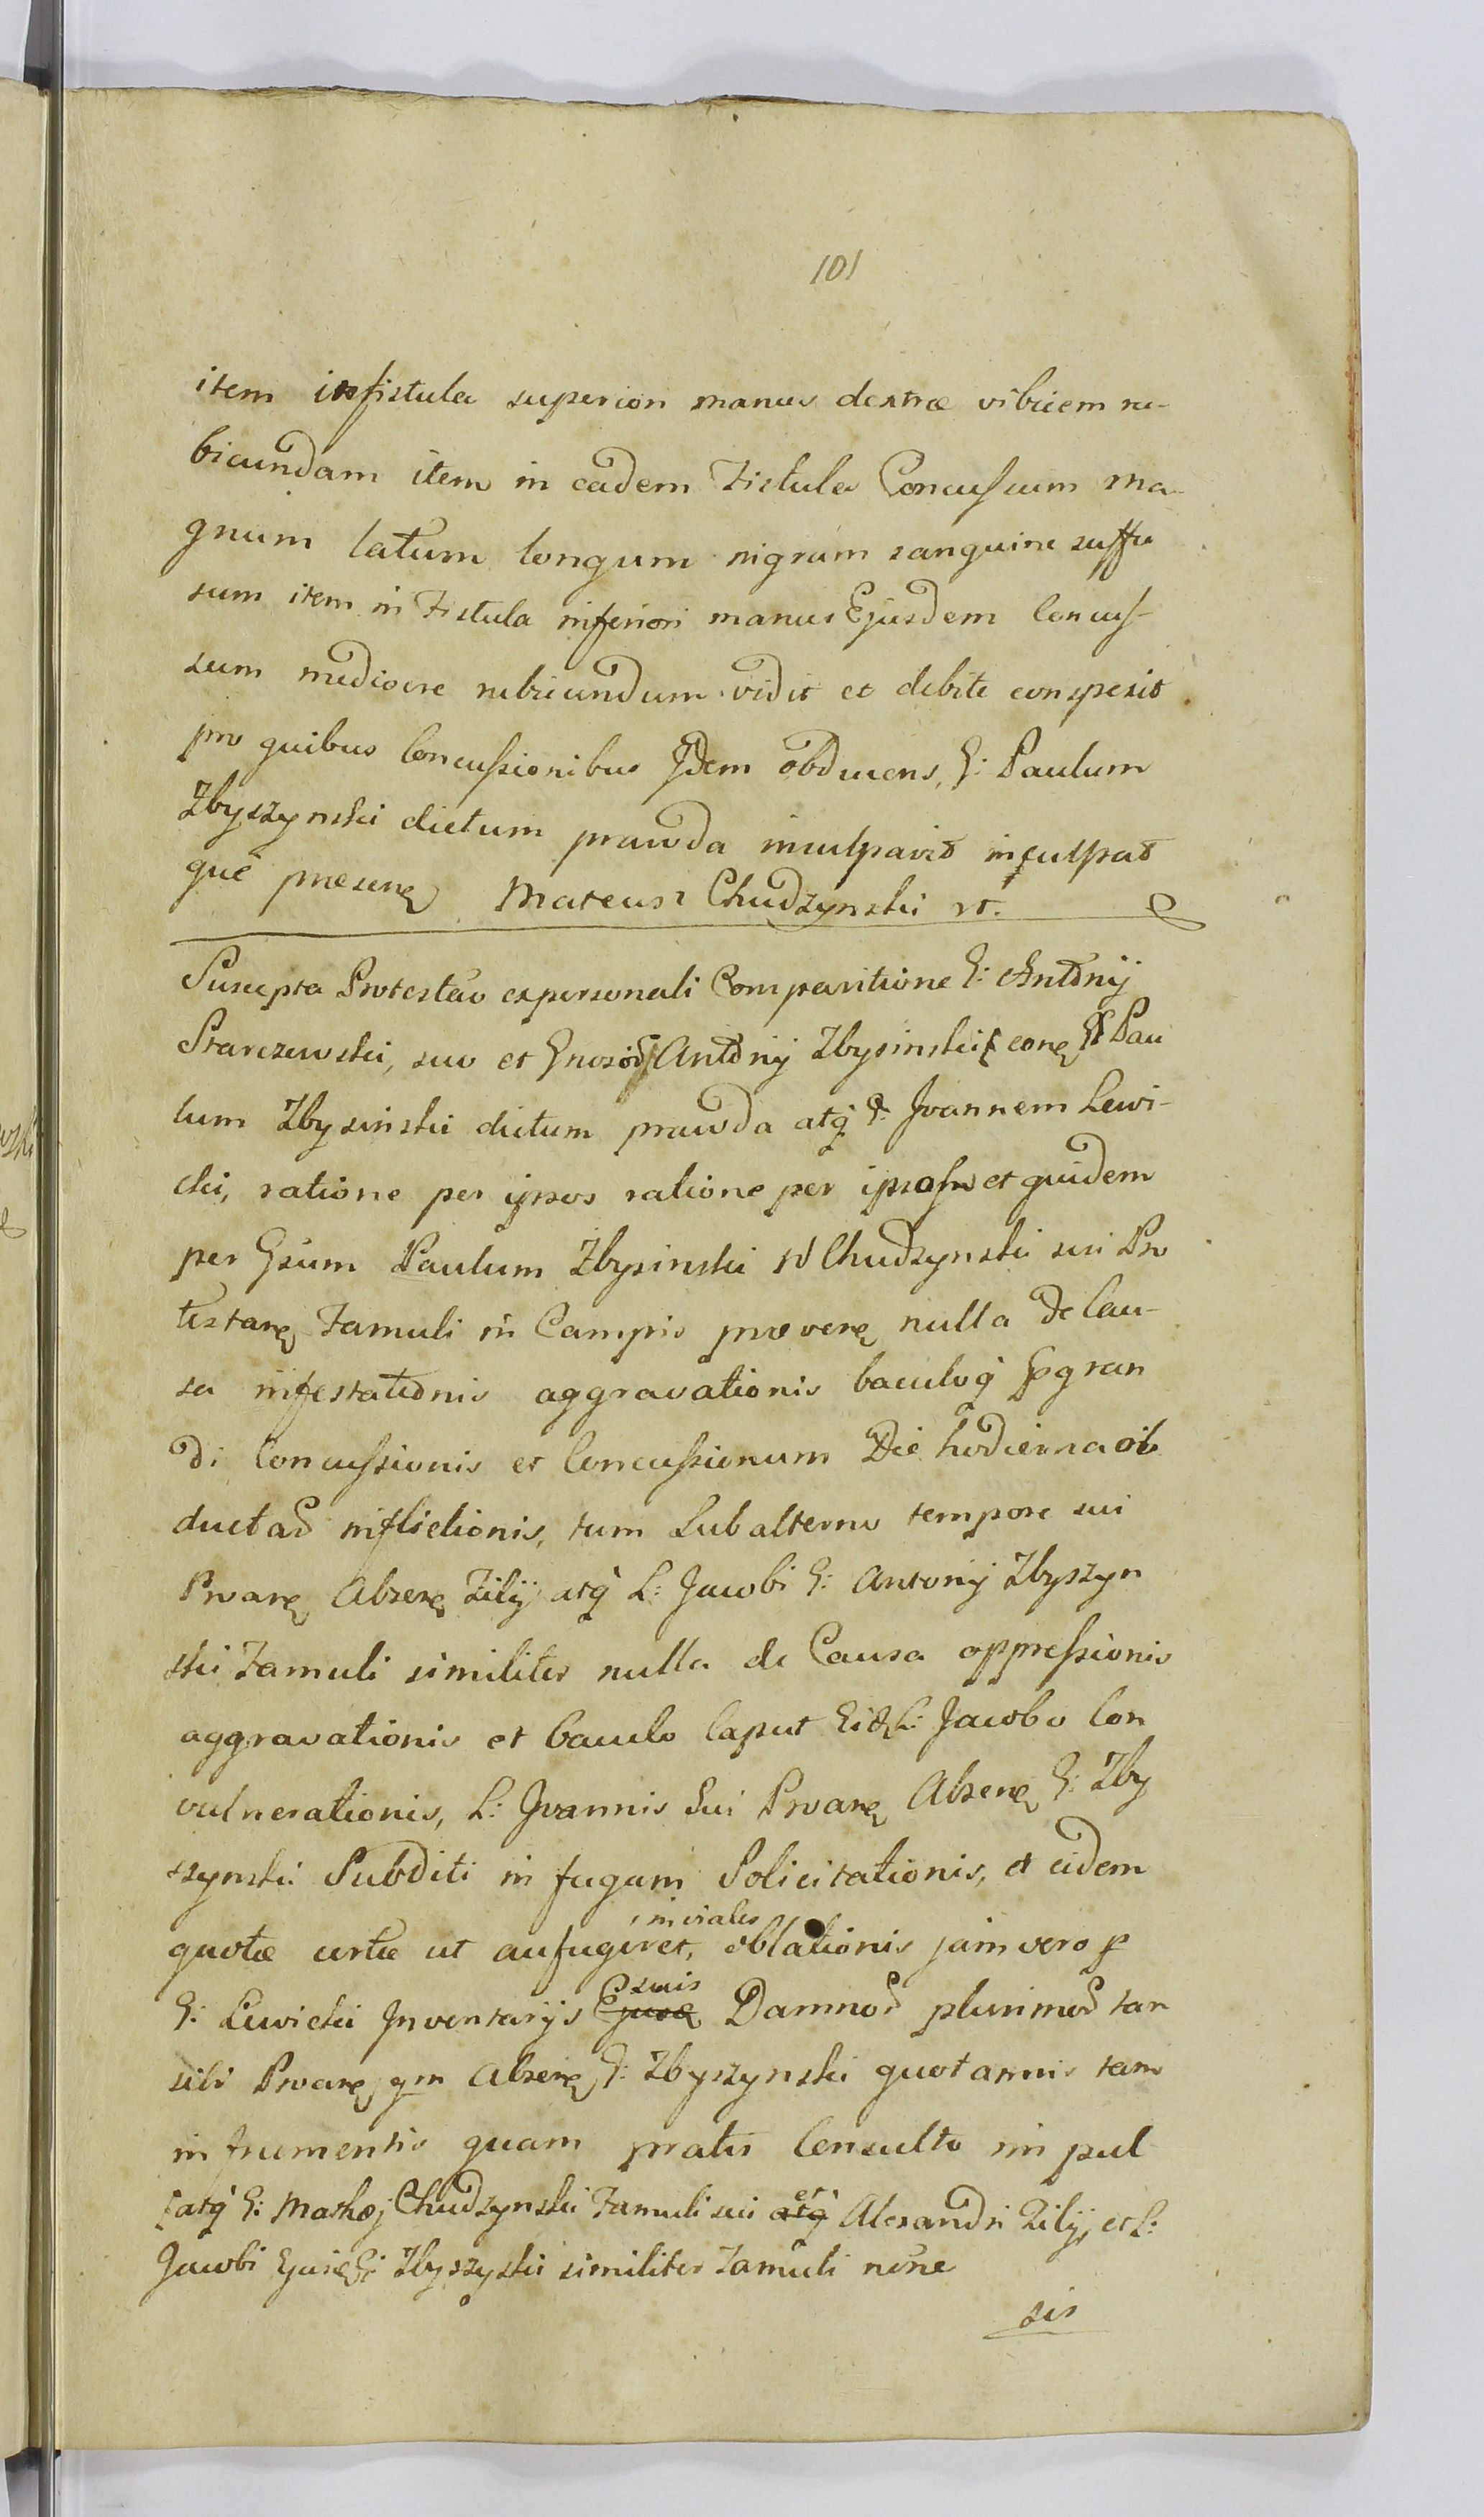 101
item in fistula superiori manus dextræ vibicem ru-
bicundam item in eadem Fistula Concussum ma-
gnum latum longum nigrum sanguine suffu
sum item in Fistula inferiori manus Ejusdem Concus-
sum mediocre rubicundum vidit et debite conspexit
pro quibus Concussionibus Idem obducens, G: Paulum
Zbyszynski dictum prawda inculpavit inculpat
que præsene Mateusz Chudzynski st.
Suscepta Protestao expersonali Comparitione G: Antonij
Starczewski, suo et Antonij Zbysinski cone Pau
lum Zbysinski dictum prawda atq G: Joannem Lewi-
cki, ratione per ipsos ratione per ipsos et quidem
per Gsum Paulum Zbysinski Chudzynski sui Pro
testane Famuli in Campis prævene nulla de Cau-
sa infestationis aggravationis baculoq gran
di Concussionis et Concussionum Die hodierna ob
ductad inflictionis, tum Subalterno tempore sui
Proane Absene Filij atq L: Jacobi G: Antonij Zbyszyn
ski Famuli similiter nulla de Causa oppressionis
aggravationis et baculo Caput L: Jacobo Con
vulnerationis, L: Joannis Sui Proane Absene G: Zby
szynski Subditi in fugam Solicitationis, et eidem
quotæ certæ ut aufugeret, oblationis jam vero p
G: Lewicki Inventarijs suis Damnod plurimod tan
sibi Proane qm Absene G: Zbyszynski quotannis tam
in frumentis quam pratis Consulto im pul
atq G: Mathæj Chudzynski Famuli sui et Alexandri Filij, et L:
Jacobi Zbyszyski similiter Famuli
sis